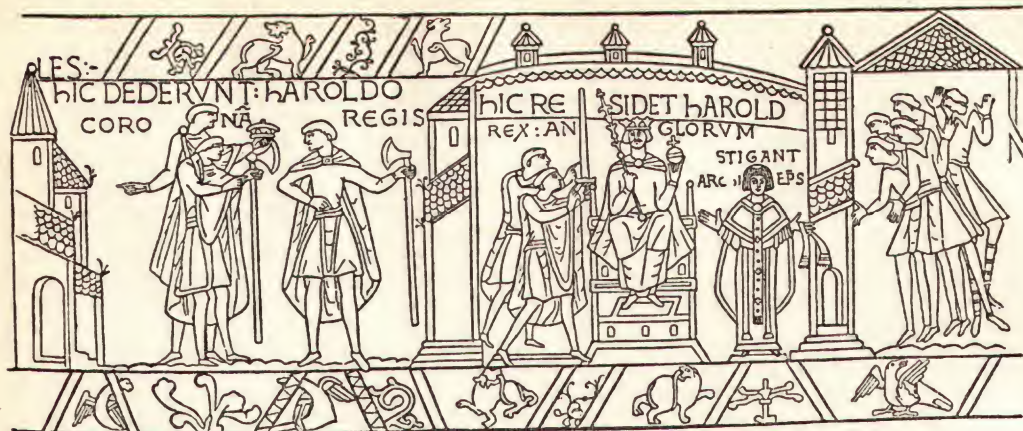 LES:-
hIC DEDERVNT: hAROLDO
CORO NA REGIS
hIC RE SIDET hAROLD
REX: AN GLORVM
STIGANT
ARC hI EPS